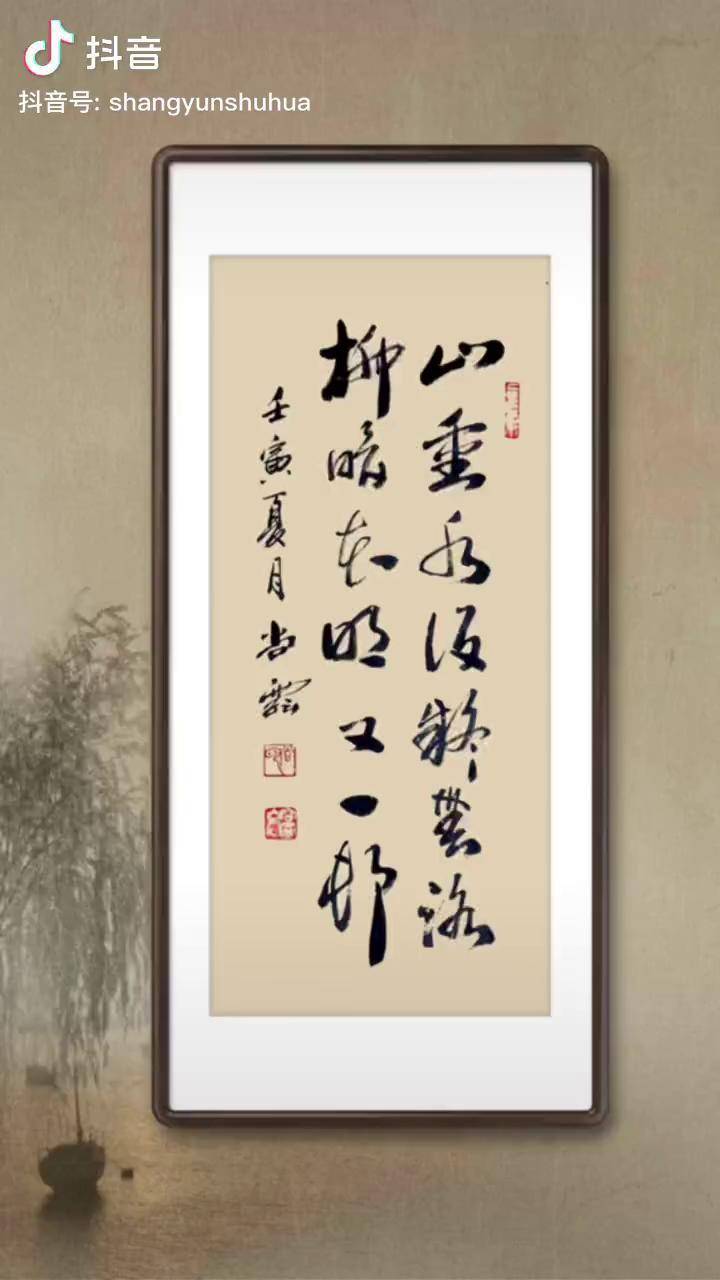 抖音
抖音号: shangyunshuhua
山重水復疑無路
柳暗花明又一邨
壬寅夏月尚雲